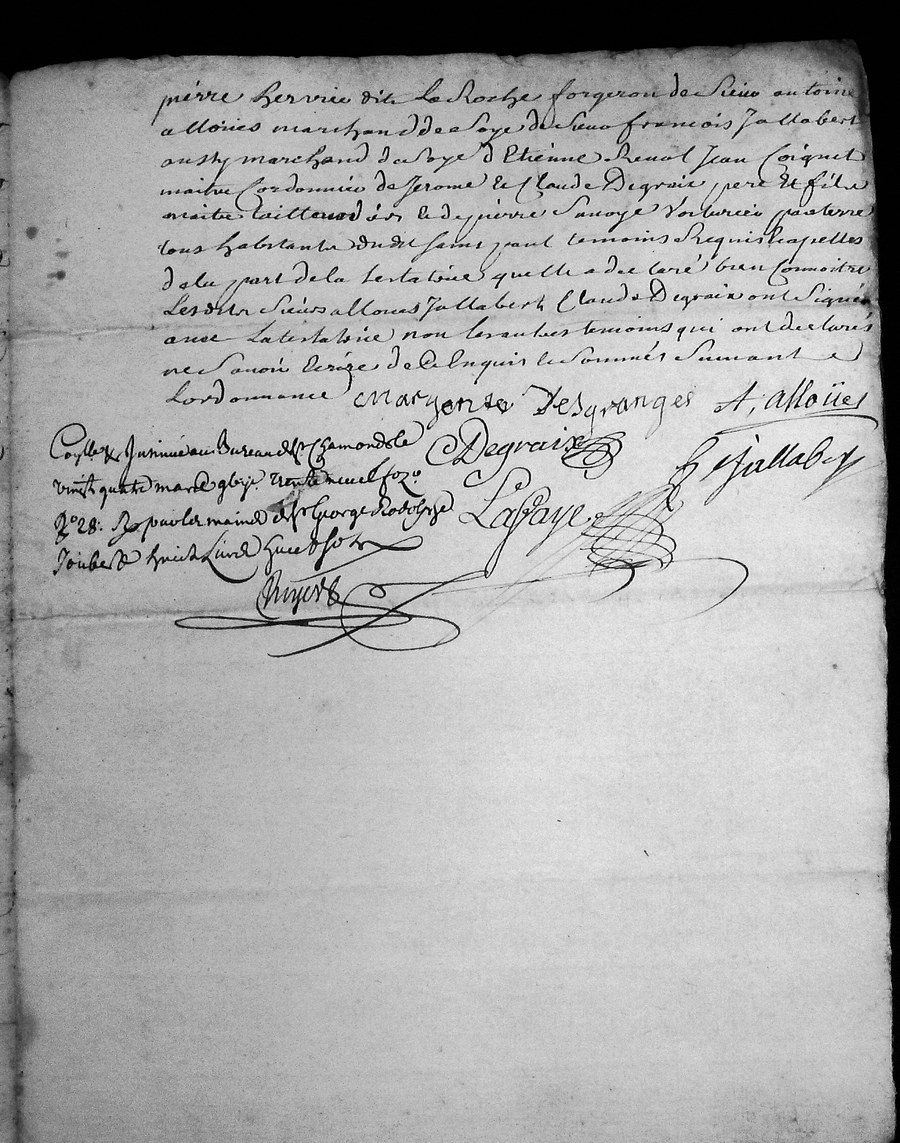 pierre hervieu dit La Roche forgeron de Sieur antoine
alloues marchand de Soye de Sieur francois Jallabert
aussy marchand de Soye d'Etienne Renol Jean Coignet
maitre Cordonnier de Jerome & Claude Degraix pere Et fils
maitre taillandiers & de pierre Sauoye Voiturier par terre
tous habitants dudit saint paul temoins Requis & apelles
de la part de la testatrice quelle a declaré bien Connoitre
Lesdits Sieurs alloues Jallabert Claude Degraix ont Signé
auec La testatrice non les autres temoins qui ont declarés
ne Sauoir Ecrire de Ce Enquis & Sommés Suiuant
Lordonnance Margerite Desgranges A, Alloües
CDegraix f Jallabert
Collé & Insinué au Bureau de St Chamond le
vingt quatre mars trente neuf fo
Ro 28: Rx par les mains de Sr George Rodolphe
Joubert huit Livres huit sols
LaFaye